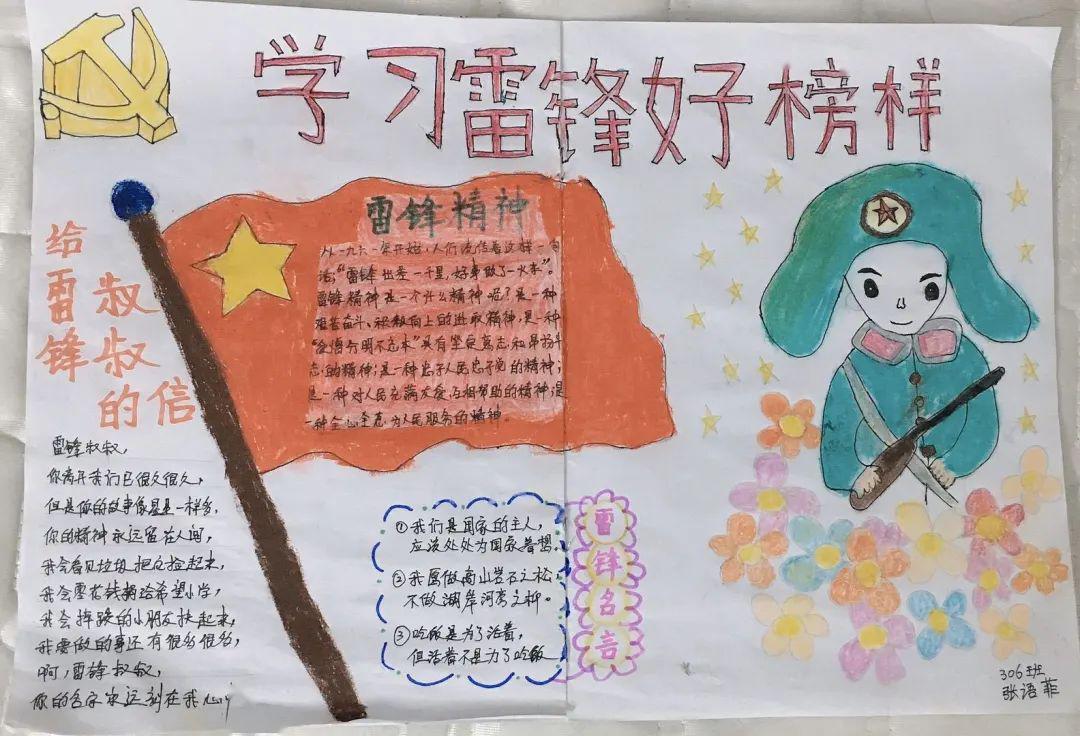 学习雷锋好榜样
雷锋精神
从一九六一年开始,人们流传着这样一句
话,“雷锋出差一千里,好事做了一火车”。
雷锋精神是一个什么精神呢?是一种
艰苦奋斗、积极向上的进取精神,是一种
“爱憎分明不忘本”具有坚定意志和昂扬斗
志的精神;是一种忠于人民忠于党的精神;
是一种对人民充满友爱,互相帮助的精神;是
一种全心全意为人民服务的精神。
给雷锋
叔叔的信
雷锋叔叔,
你离开我们已很久很久,
但是你的故事像星星一样多,
你的精神永远留在人间,
我会看见垃圾把它捡起来,
我会零花钱捐给希望小学,
我会摔跤的小朋友扶起来,
我要做的事还有很多很多,
啊,雷锋叔叔,
你的名字永远刻在我心
①我们是国家的主人,
应该处处为国家着想。
②我愿做高山岩石之松
不做湖岸河旁之柳。
③吃饭是为了活着,
但活着不是为了吃饭
雷锋名言
306班
张语菲